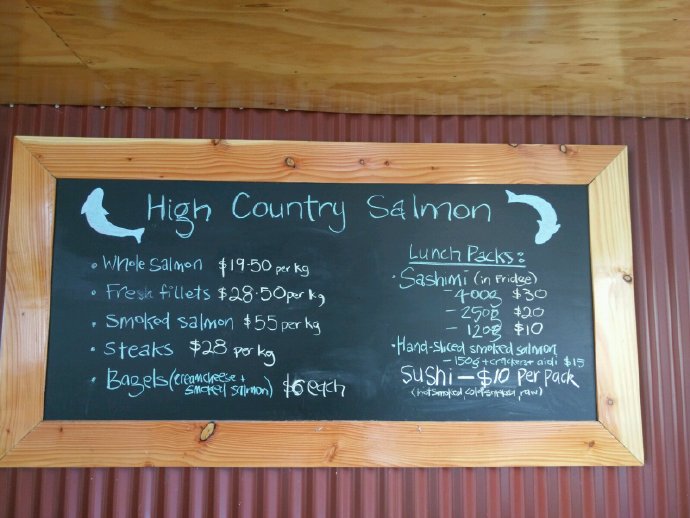 High Country Salmon
• Whole Salmon $19.50 per kg
• Fresh fillets $28.50 per kg
• Smoked salmon $55 per kg
• Steaks $28 per kg
• Bagels (creamcheese +
smoked salmon) $6 each
Lunch Packs:
• Sashimi (in fridge)
- 400g $30
- 250g $20
- 120g $10
• Hand-sliced smoked salmon
- 150g + crackers + aioli $15
Sushi - $10 per pack
(hot smoked, cold smoked, raw)